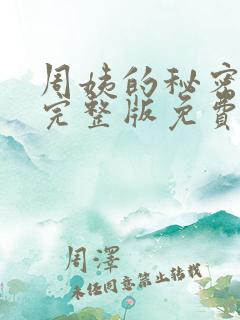 周姨的秘密
完整版免费
周泽
未经同意禁止转载